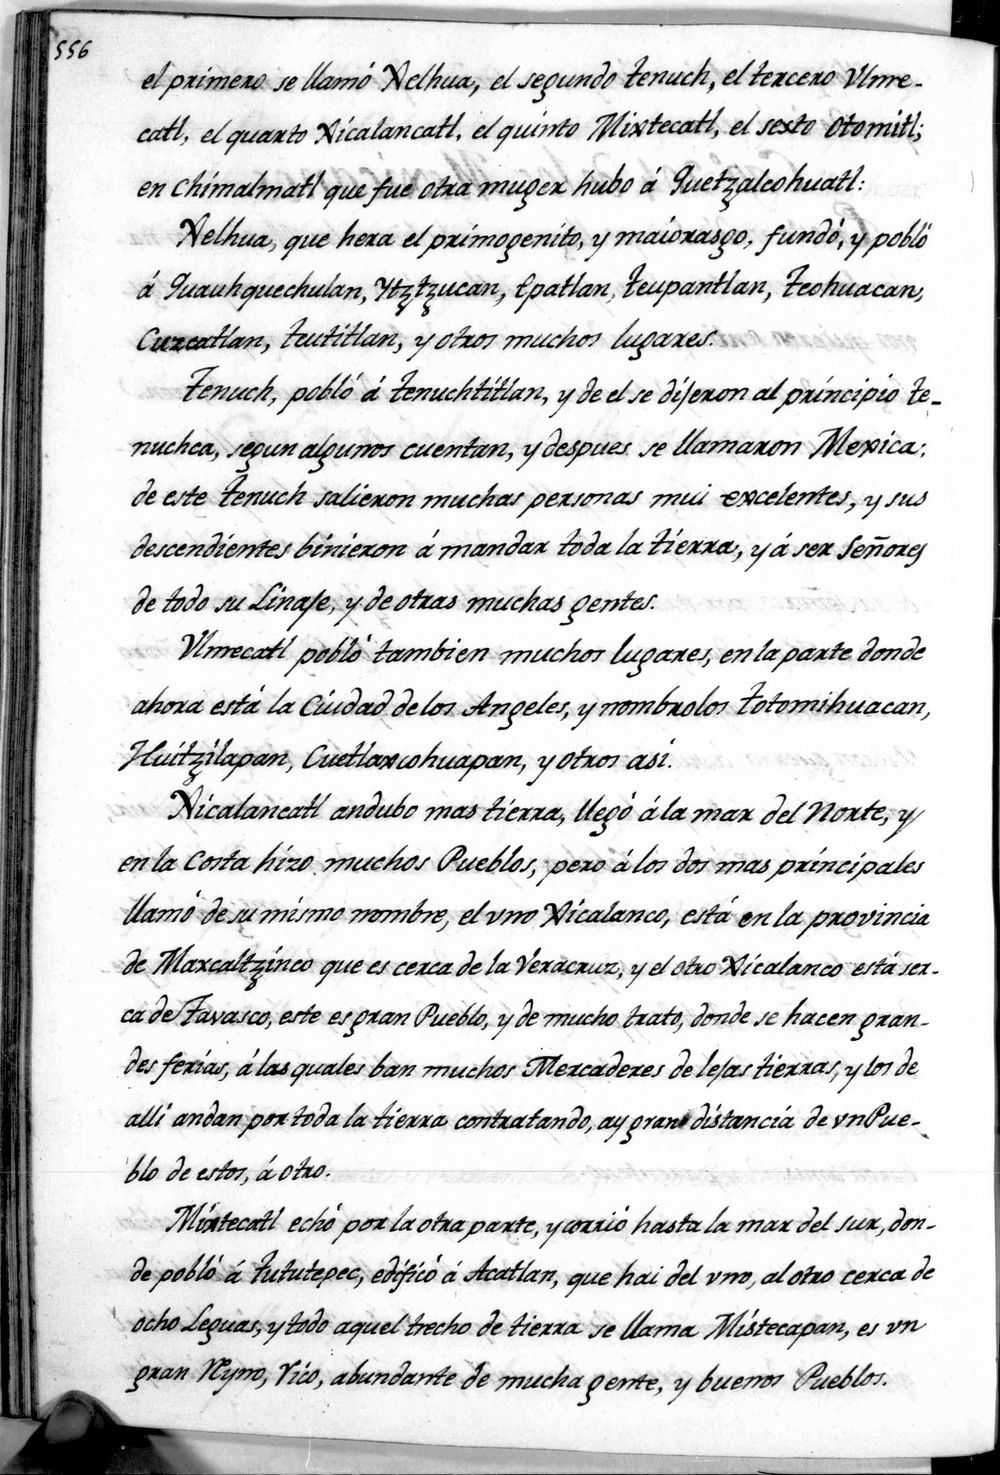 556
el primero se llamó Xelhua, el segundo tenuch, el tercero Vlme-
catl, el quarto Xicalancatl, el quinto Mixtecatl, el sexto Otomitl;
en Chimalmatl que fue otra muger hubo á Quetzalcohuatl:
Xelhua, que hera el primogenito, y maiorasgo, fundó, y pobló
á Quauhquechulan, Ytztzucan, Epatlan, teupantlan, teohuacan,
Cuzcatlan, teutitlan, y otros muchos lugares.
Tenuch, pobló á tenuchtitlan, y de el se dijeron al principio te-
nuchca, segun algunos cuentan, y despues se llamaron Mexica:
de este tenuch salieron muchas personas mui excelentes, y sus
descendientes binieron á mandar toda la tierra, y á ser Señores
de todo su Linaje, y de otras muchas gentes.
Vlmecatl pobló tambien muchos lugares, en la parte donde
ahora está la Ciudad de los Angeles, y nombrolos totomihuacan,
Huitzilapan, Cuetlaxcohuapan, y otros asi.
Xicalancatl andubo mas tierra, llegó á la mar del Norte, y
en la Costa hizo muchos Pueblos, pero á los dos mas principales
llamó de su mismo nombre, el vno Xicalanco, está en la provincia
de Maxcaltzinco que es cerca de la Veracruz, y el otro Xicalanco está ser-
ca de Tavasco, este es gran Pueblo, y de mucho trato, donde se hacen gran-
des ferias, á las quales ban muchos Mercaderes de lejas tierras, y los de
alli andan por toda la tierra contratando, ay gran distancia de vn Pue-
blo de estos, á otro.
Mixtecatl echó por la otra parte, y corrió hasta la mar del sur, don-
de pobló á tututepec, edificó á Acatlan, que hai del vno, al otro cerca de
ocho Leguas, y todo aquel trecho de tierra se llama Mistecapan, es vn
gran Reyno, Rico, abundante de mucha gente, y buenos Pueblos.